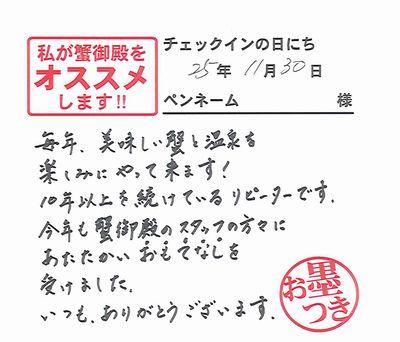 私が蟹御殿を
オススメ
します!!
チェックインの日にち
25年 11月30日
ペンネーム 様
毎年、美味しい蟹と温泉を
楽しみにやって来ます!
10年以上を続けているリピーターです.
今年も蟹御殿のスタッフの方々に
あたたかいおもてなしを
受けました.
いつも、ありがとうございます.
お墨
つき